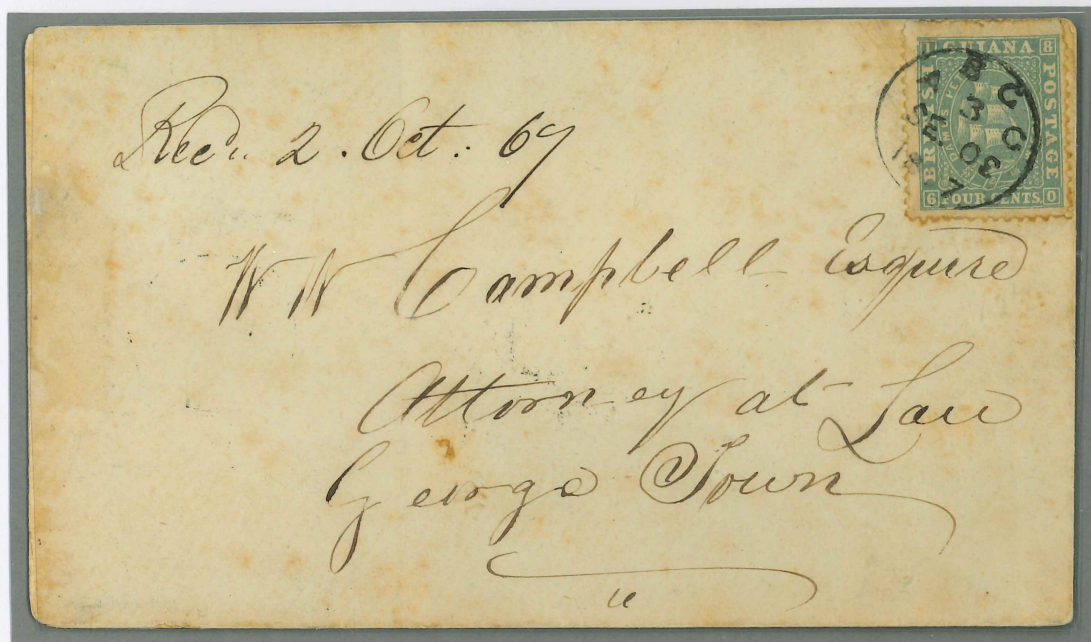 Recd. 2. Oct. 67
W W Campbell Esquire
Attorney at Law
George Town
BRITISH GUIANA POSTAGE
FOUR CENTS
1 8 6 0